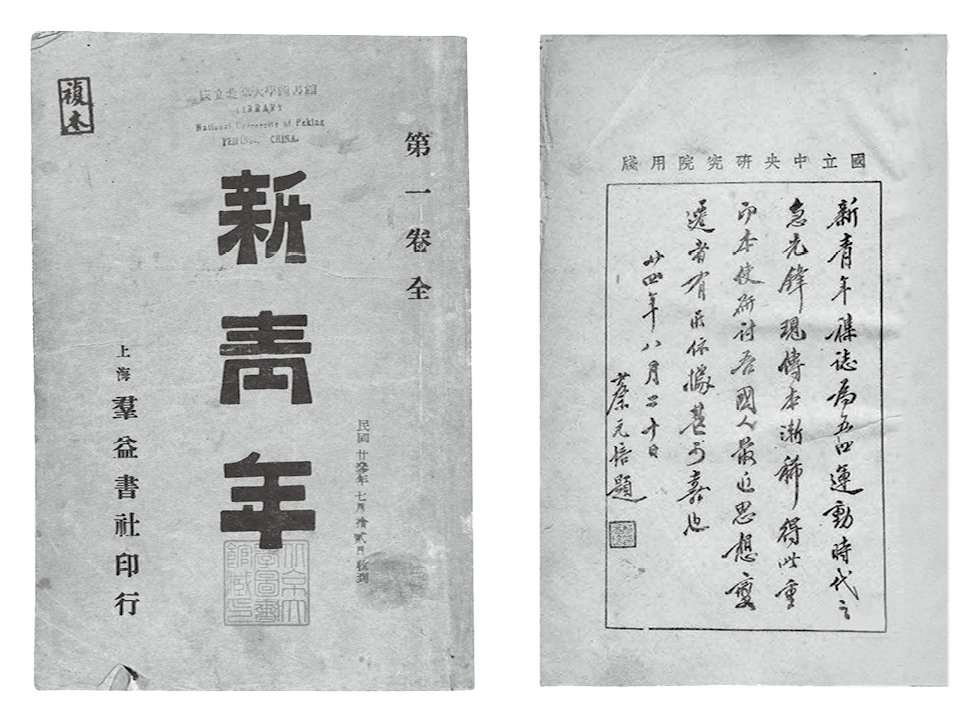 複本
國立北京大學圖書館
LIBRARY
National University of Peking
PEIPING, CHINA.
第一卷全
新青年
上海
羣益書社印行
民國廿參年七月拾貳日收到
北京大
學圖書
館藏
國立中央研究院用牋
新青年雜誌為五四運動時代之
急先鋒現傳本漸稀得此重
印本使研討吾國人最近思想變
遷者有所依據甚可嘉也
廿四年八月二十日
蔡元培題